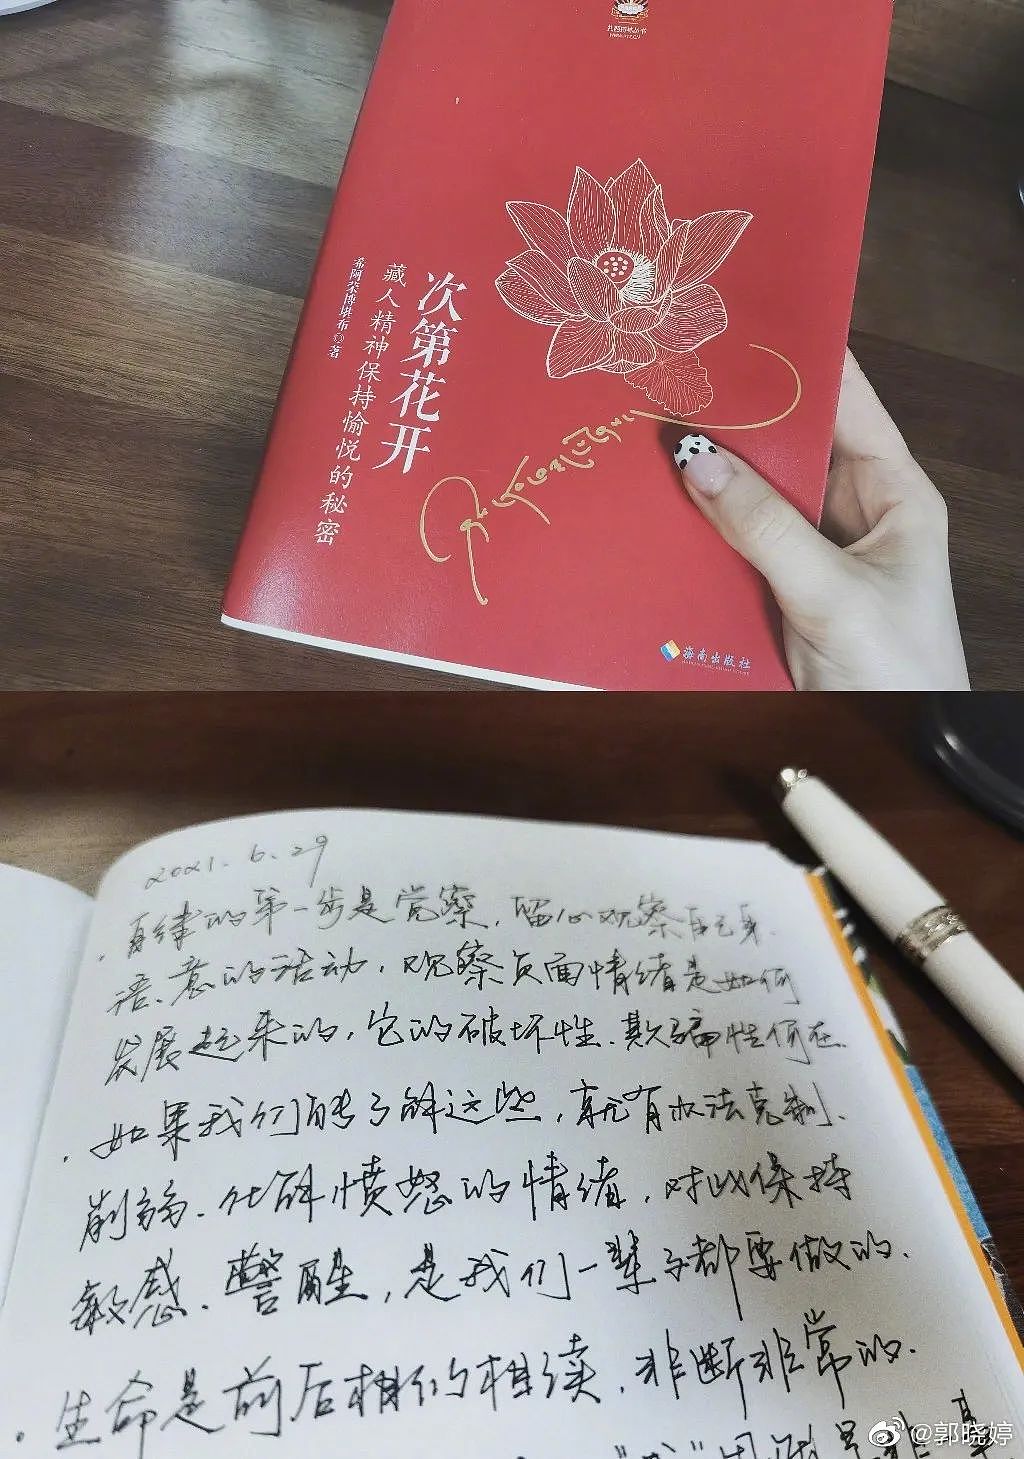 扎西持林丛书
次第花开
藏人精神保持愉悦的秘密
希阿荣博堪布◎著
海南出版社
2021.6.29
.自律的第一步是觉察,留心观察自己身、
语、意的活动,观察负面情绪是如何
发展起来的,它的破坏性、欺骗性何在.
.如果我们能了解这些,就有办法克制、
削弱、化解愤怒的情绪,对此保持
敏感、警醒,是我们一辈子都要做的.
.生命是前后相似的相续,非断非常的.
@郭晓婷